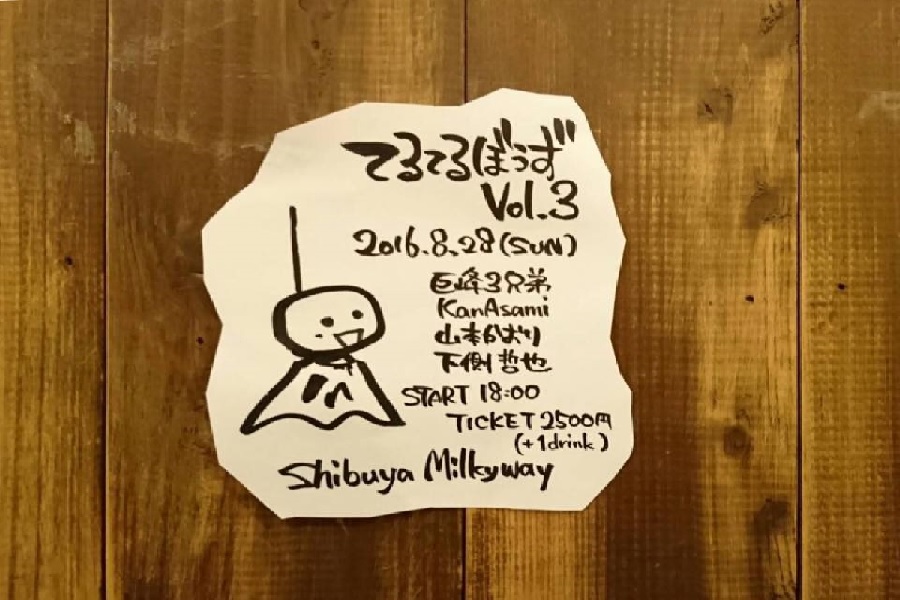 てるてるぼうず
Vol.3
2016.8.28(SUN)
巨峰3兄弟
KanAsami
山本かおり
下側哲也
START 18:00
TICKET 2500円
(+1drink)
Shibuya Milkyway